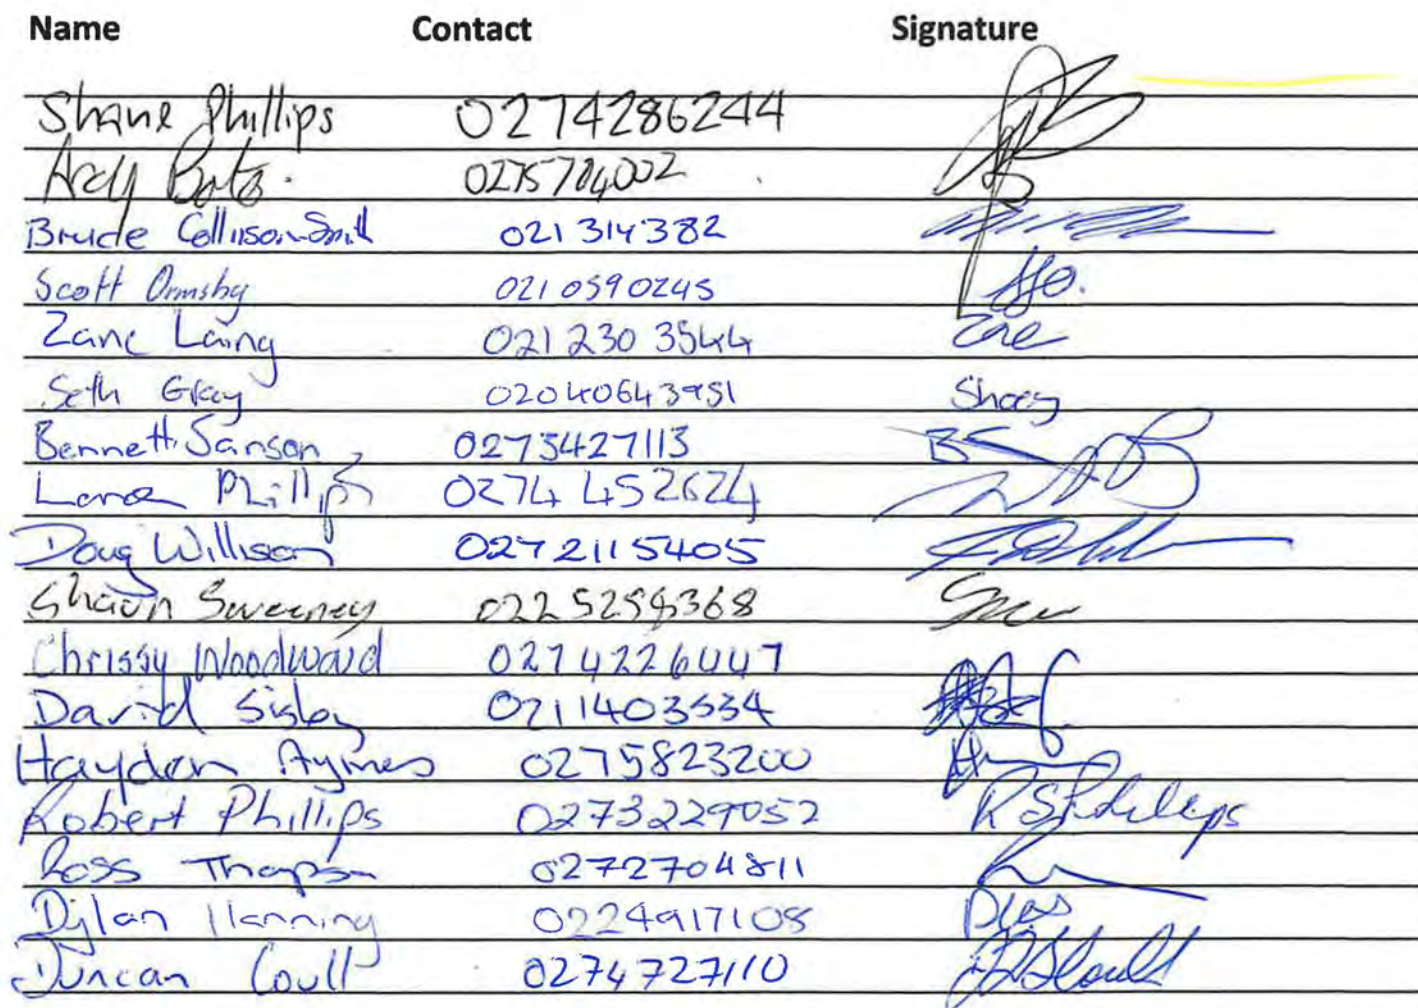 Name Contact Signature
Shane Phillips 0274286244
Andy 
Bruce Collinson-Smith 021 314382
Scott Ormsby 0210590245
Zane Laing 021 230 3544 Zane
Seth Gray 02040643951
Bennett Sanson 0273427113 BS
Lance Phillips 0274 452624
Doug Willison 02721115405
Shaun Sweeney 0225258368
Chrissy Woodward 02742226447
David Sisley 0211403534
Hayden Aymes 0275823200
Robert Phillips 0273229052 R S Phillips
Ross Thompson 0272704811
Dylan Hanning 0224917108
Duncan Coull 0274727110